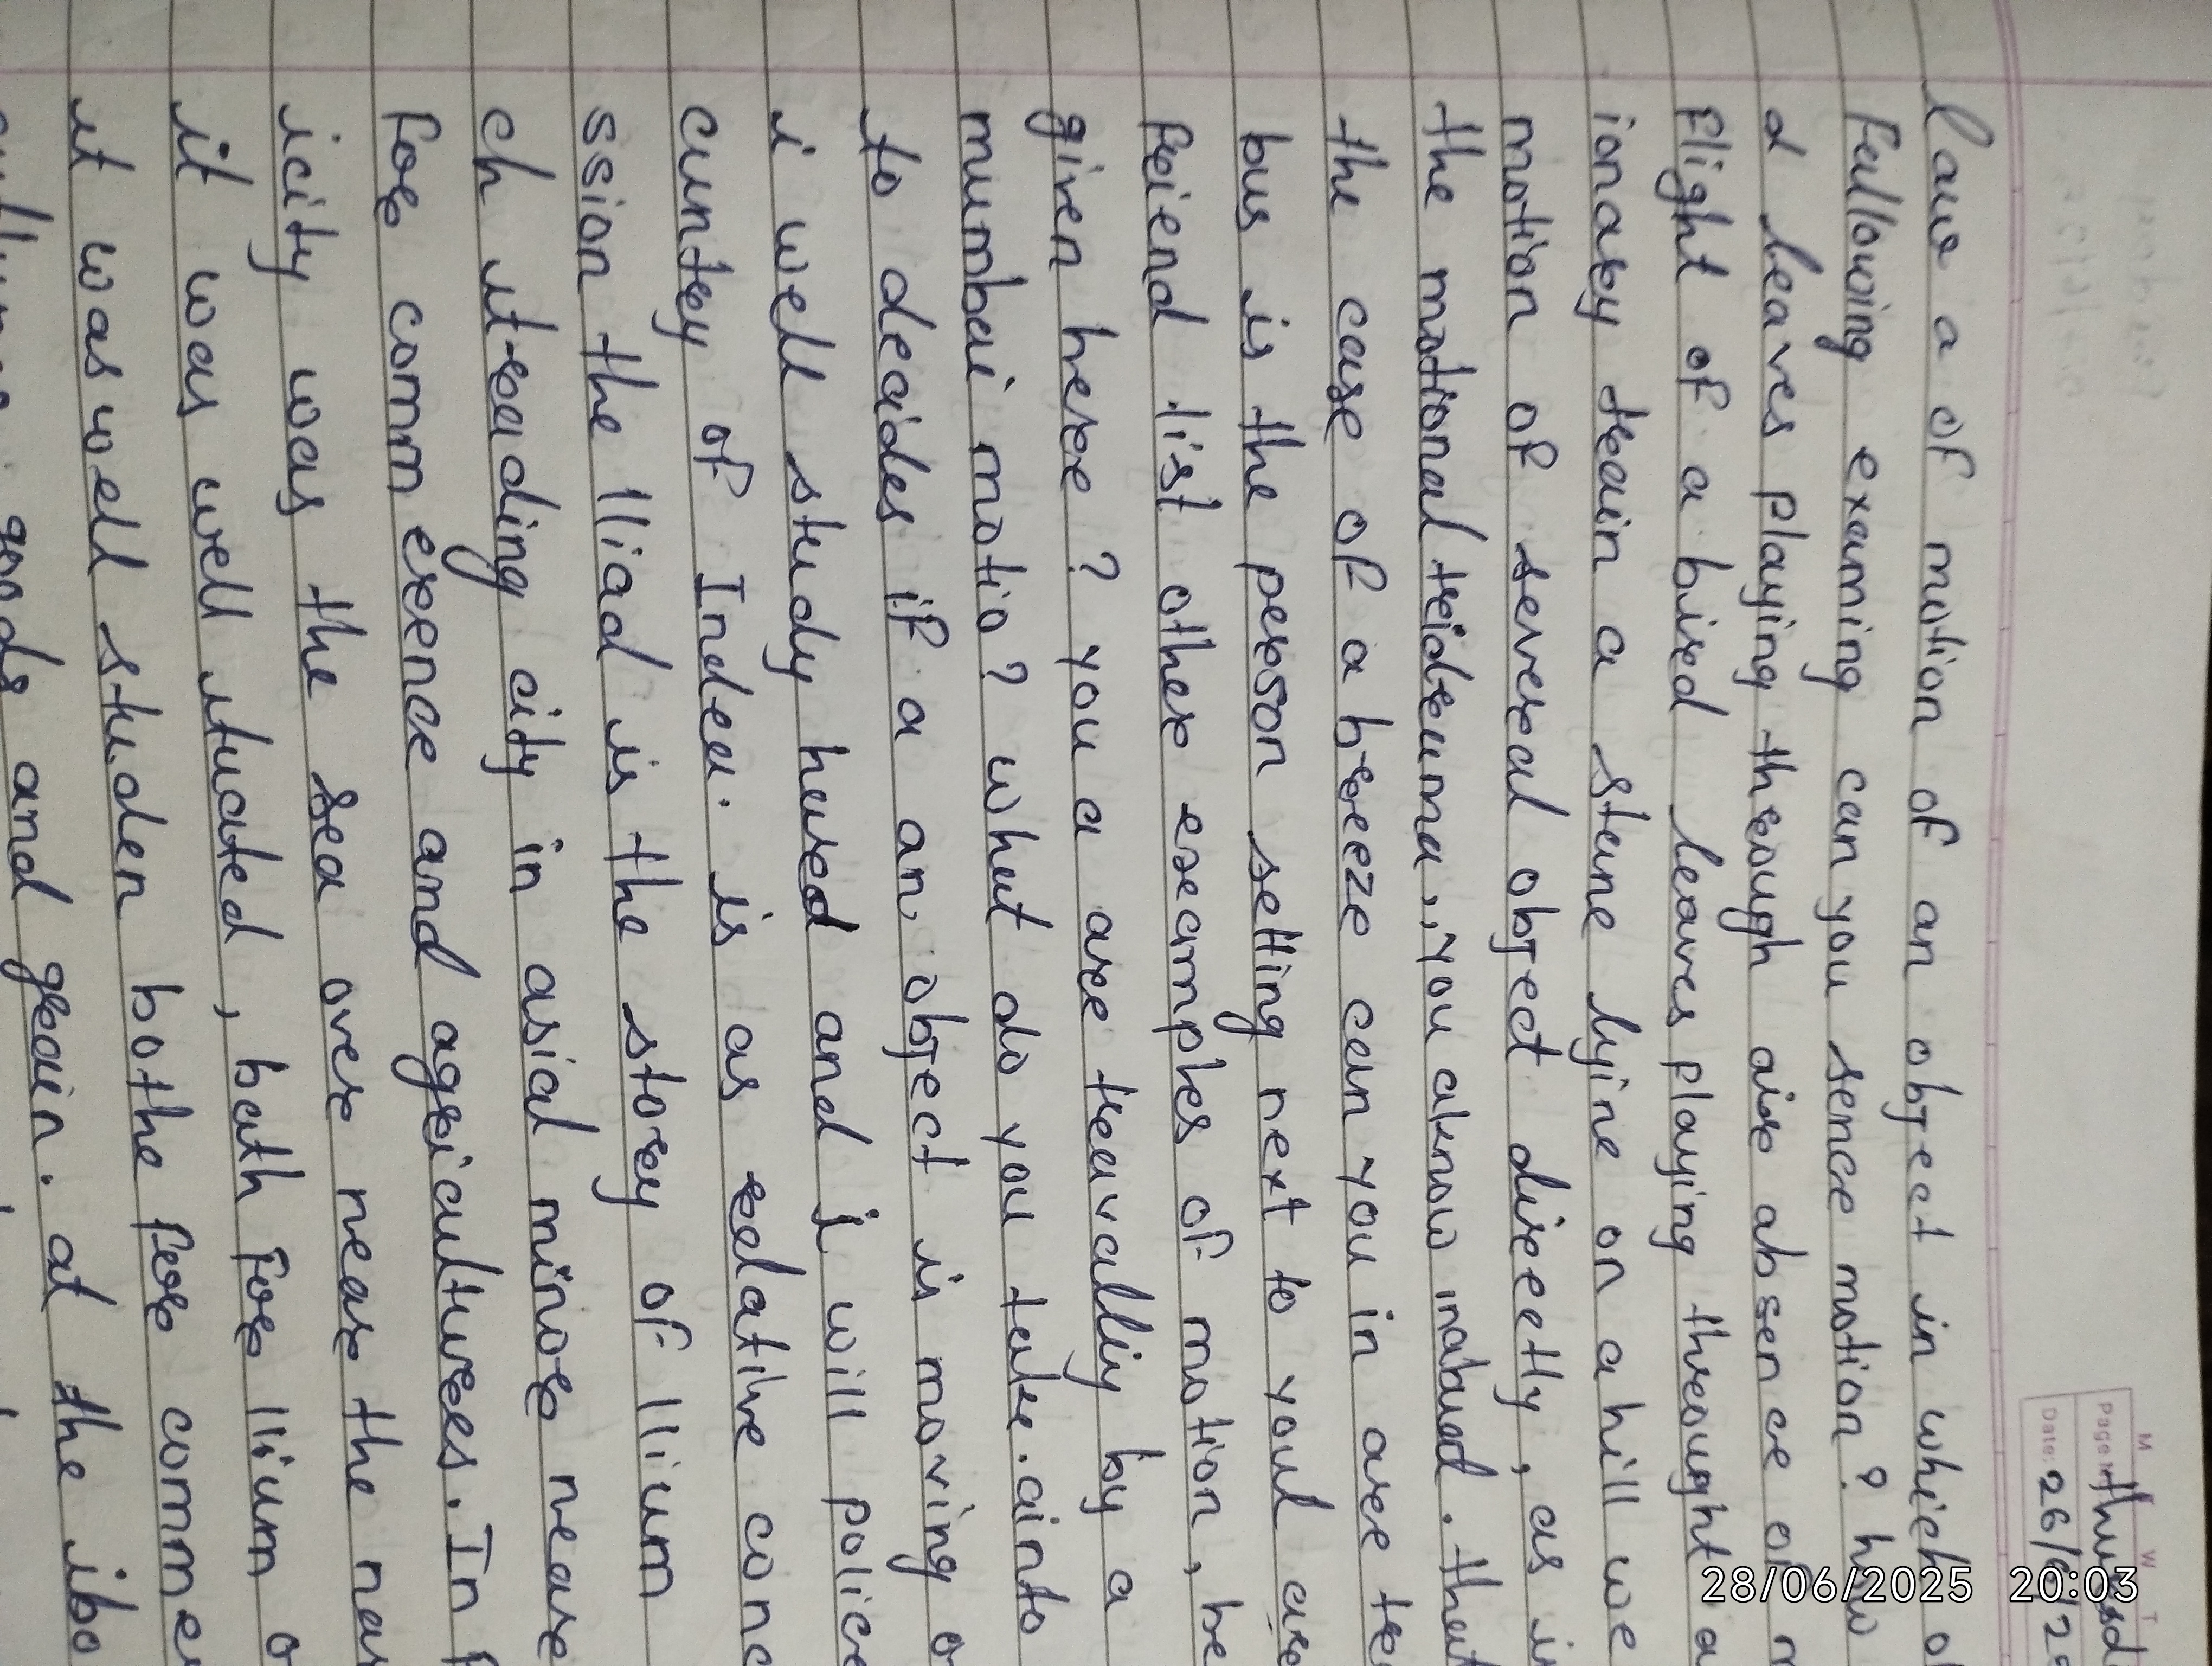 M T W T
Page N
thursd
Date: 26/6/2
law a of motion of an object in which o
Fullowing examing can you sence motion? how
d leaves playing through air absence of m
Flight of a bird leaves playing throught a
ionary train a stune lyine on a hill we
motion of several object directly, as i
the motional tridruma,, you aknow inabud. that
the case of a breeze can you in are
bus is the person setting next to youl are
friend list other examples of motion, he
given here? you a are treavally by a
mumbai motio? what do you take.ainto
to decides if a an object is moving o
i well study hused and i will police
cuntry of Indea. is as relative conc
ssion the lliad is the storey of llium
ch itrading city in asial minor near
for comm erence and agricultures. In
icity was the sea over near the nar
it was well ituated, bath for llium o
it was well studen bothe for commer
goods and grain. at the ibo
28/06/2025 20:03